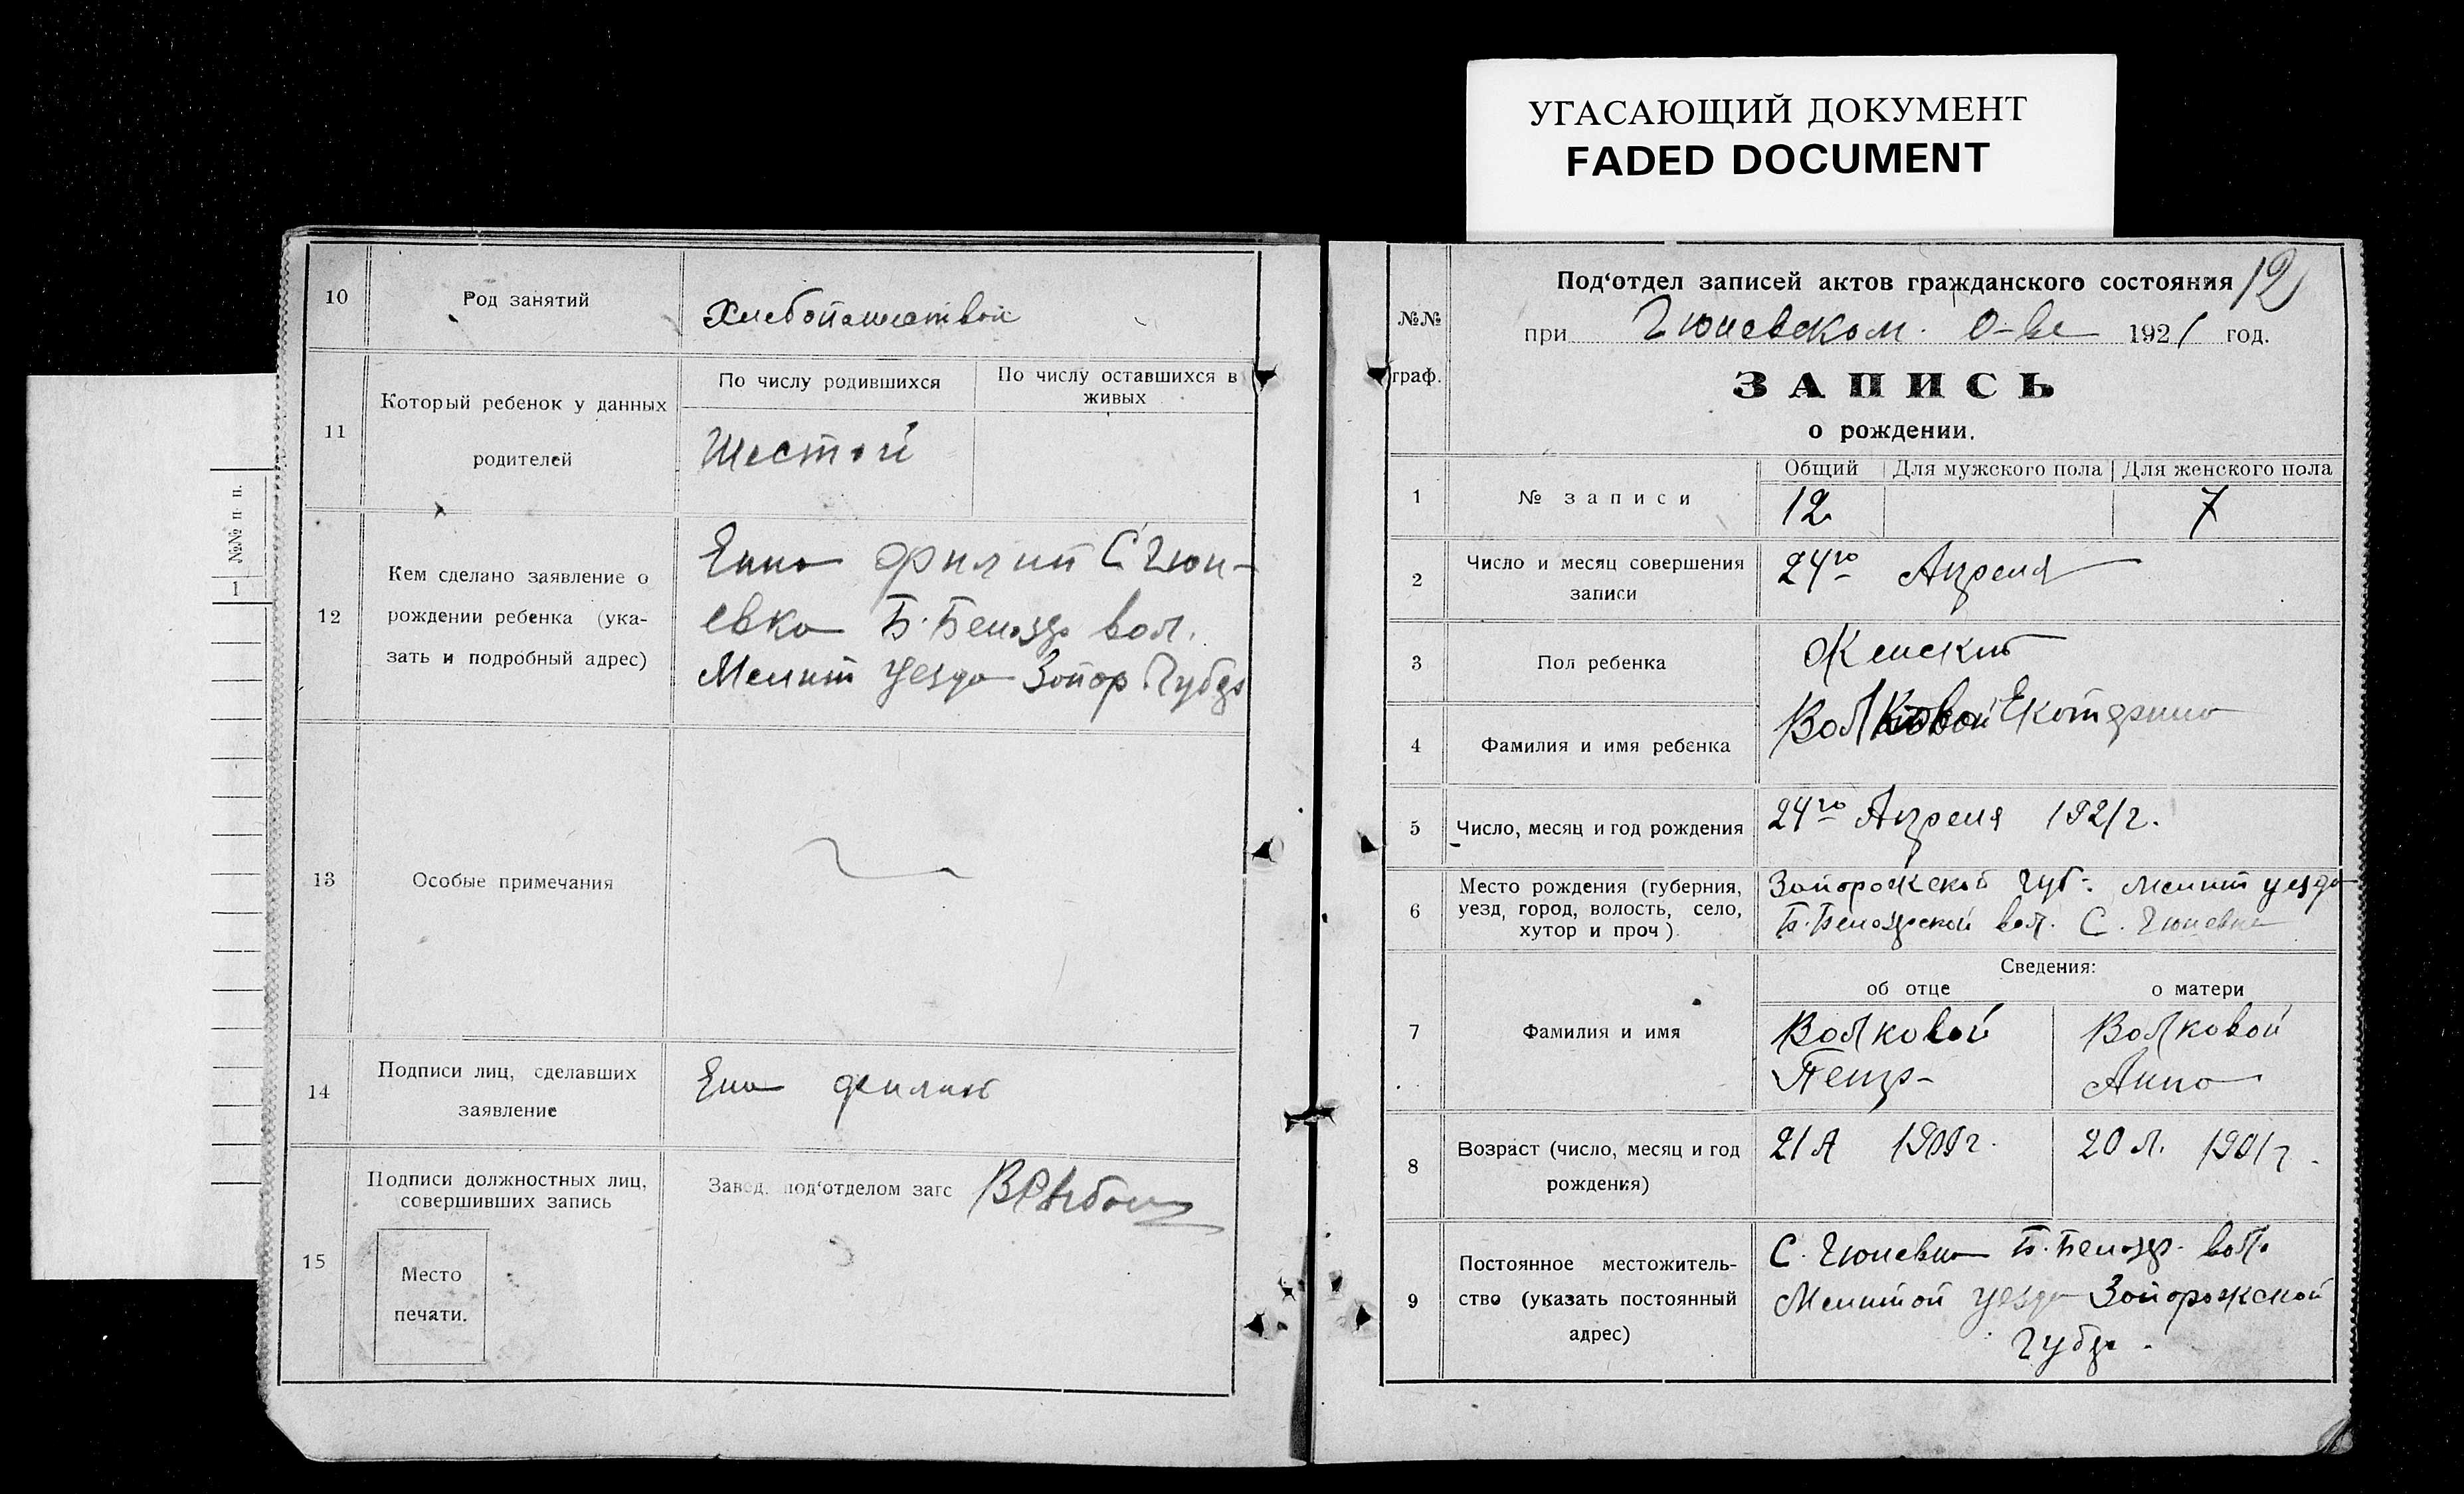 УГАСАЮЩИЙ ДОКУМЕНТ
FADED DOCUMENT
№№ п п.
1
10
Род занятий
11
Который ребенок у данных
родителей
По числу родившихся
По числу оставшихся в
живых
Шестой
12
Кем сделано заявление о
рождении ребенка (ука-
зать и подробный адрес)
Филип С Гюн-
евка Б. Белозер вол.
Мелит уезда Запор Губер
13
Особые примечания
14
Подписи лиц, сделавших
заявление
Филип
15
Подписи должностных лиц,
совершивших запись
Завед. под‘отделом загс
Место
печати.
№№
граф.
Под‘отдел записей актов гражданского состояния
12
при Гюневском 1921 год.
ЗАПИСЬ
о рождении.
1
№ записи
Общий
Для мужского пола
Для женского пола
12
7
2
Число и месяц совершения
записи
24го Апреля
3
Пол ребенка
Женский
4
Фамилия и имя ребенка
Волковой Екатерина
5
Число, месяц и год рождения
24го Апреля 1921 г.
6
Место рождения (губерния,
уезд, город, волость, село,
хутор и проч).
Запорожской Губ. Мелит уезда
Б. Белозерской вол. С. Гюневка
7
Фамилия и имя
Сведения:
об отце
о матери
Волковой
Петр
Волковой
Анна
8
Возраст (число, месяц и год
рождения)
21 л
20 л. 1901 г.
9
Постоянное местожитель-
ство (указать постоянный
адрес)
С. Гюневка Б. Белозер. вол.
уезда Запорожской
Губер.